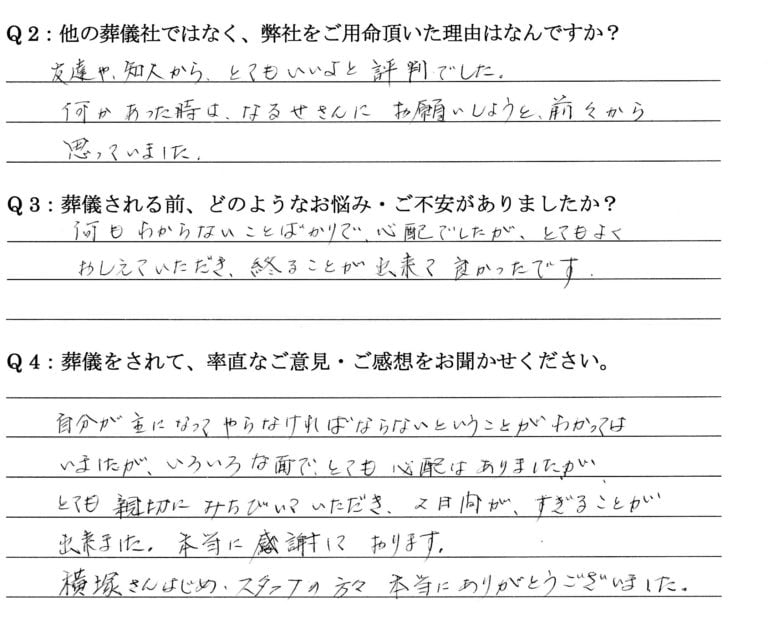 Q2：他の葬儀社ではなく、弊社をご用命頂いた理由はなんですか？
友達や、知人から、とてもいいよと評判でした。
何かあった時は、なるせさんに お願いしようと、前々から
思っていました。
Q3：葬儀される前、どのようなお悩み・ご不安がありましたか？
何もわからないことばかりで、心配でしたが、とてもよく
おしえていただき、終ることが出来て良かったです.
Q4：葬儀をされて、率直なご意見・ご感想をお聞かせください。
自分が主になってやらなければならないということがわかっては
いましたが、いろいろな面で、とても心配はありましたが、
とても親切にみちびいていただき、2日間が、すぎることが
出来ました。本当に感謝して おります。
横塚さんはじめ、スタッフの方々 本当にありがとうございました。